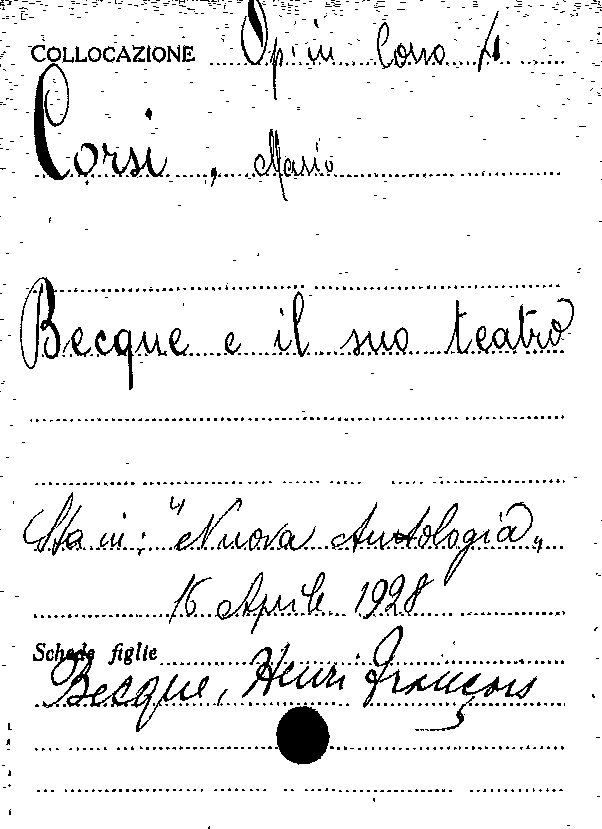 COLLOCAZIONE Op. in Corso 4
Corsi, Mario
Becque e il suo teatro
Sta in: "Nuova Antologia„
16 Aprile 1928
Schede figlie
Becque, Henri François